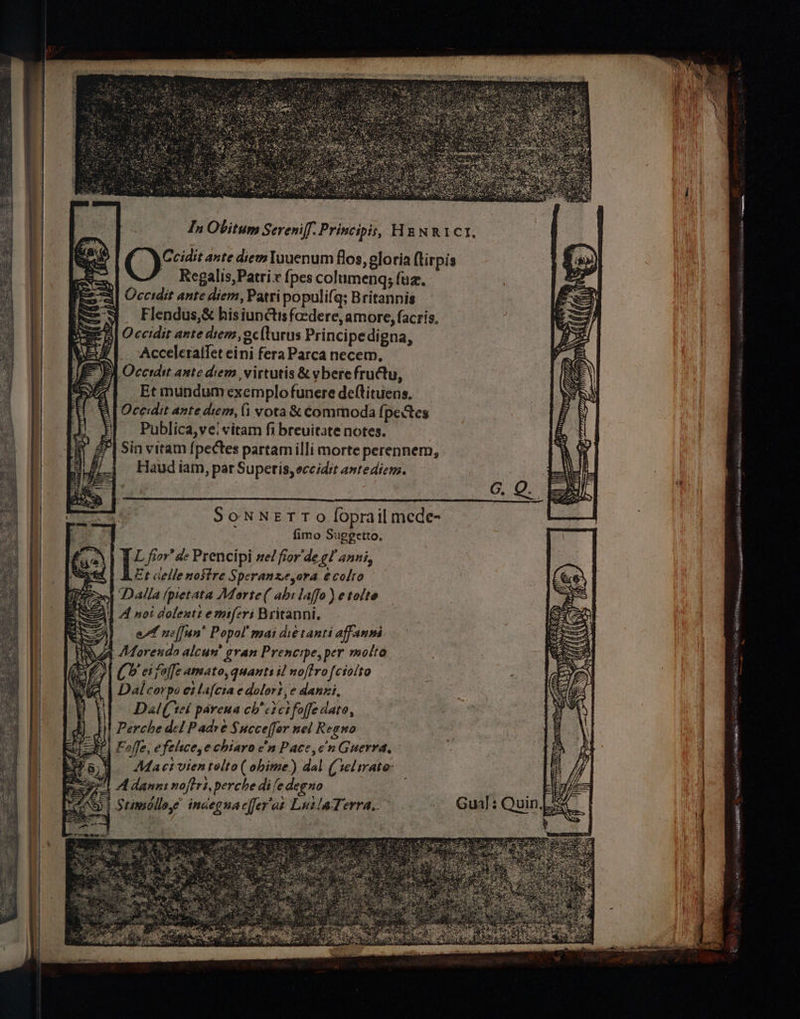 In Obitum Sereniſſ. Principis, HENRICI.
OCcidit ante diem Iuuenum flos, gloria ſtirpis
Regalis, Patriæ ſpes columenq; ſuæ.
Occidit ante diem, Patri populiſq; Britannis
Flendus, & his iunctis fœdere, amore, ſacris.
Occidit ante diem, geſturus Principe digna,
Acceleraſſet eini fera Parca necem.
Occidit ante diem, virtutis & vbere fructu,
Et mundum exemplo funere deſtituens.
Occidit ante diem, ſi vota & commoda ſpectes
Publica, vel vitam ſi breuitate notes.
Sin vitam ſpectes partam illi morte perennem,
Haud iam, par Superis, occidit ante diem.
G. Q.
SONNETTO ſopra il mede-
ſimo Suggetto.
IL fior' de Prencipi nel fior' de gl' anni,
Et delle noſtre Speranze, ora è colto
Dalla ſpietata Morte ( ahi laſſo ) e tolto
A noi dolenti e miſeri Britanni.
neſſun' Popol' mai diè tanti affanni
Morendo alcun' gran Prencipe, per molto
Ch' ei foſſe amato, quanti il noſtro ſciolto
Dal corpo ei laſcia e dolori, e danni.
Dal Ciel pareua ch' ei ci foſſe dato,
Perche del Padre Succeſſor nel Regno
Foſſe, e felice, e chiaro e'n Pace, e'n Guerra.
Ma ci vien tolto ( ohime ) dal Ciel irato
A danni noſtri, perche di ſe degno
Stimóllo, e indegna eſſer' di Lui la Terra.
Gual: Quin.